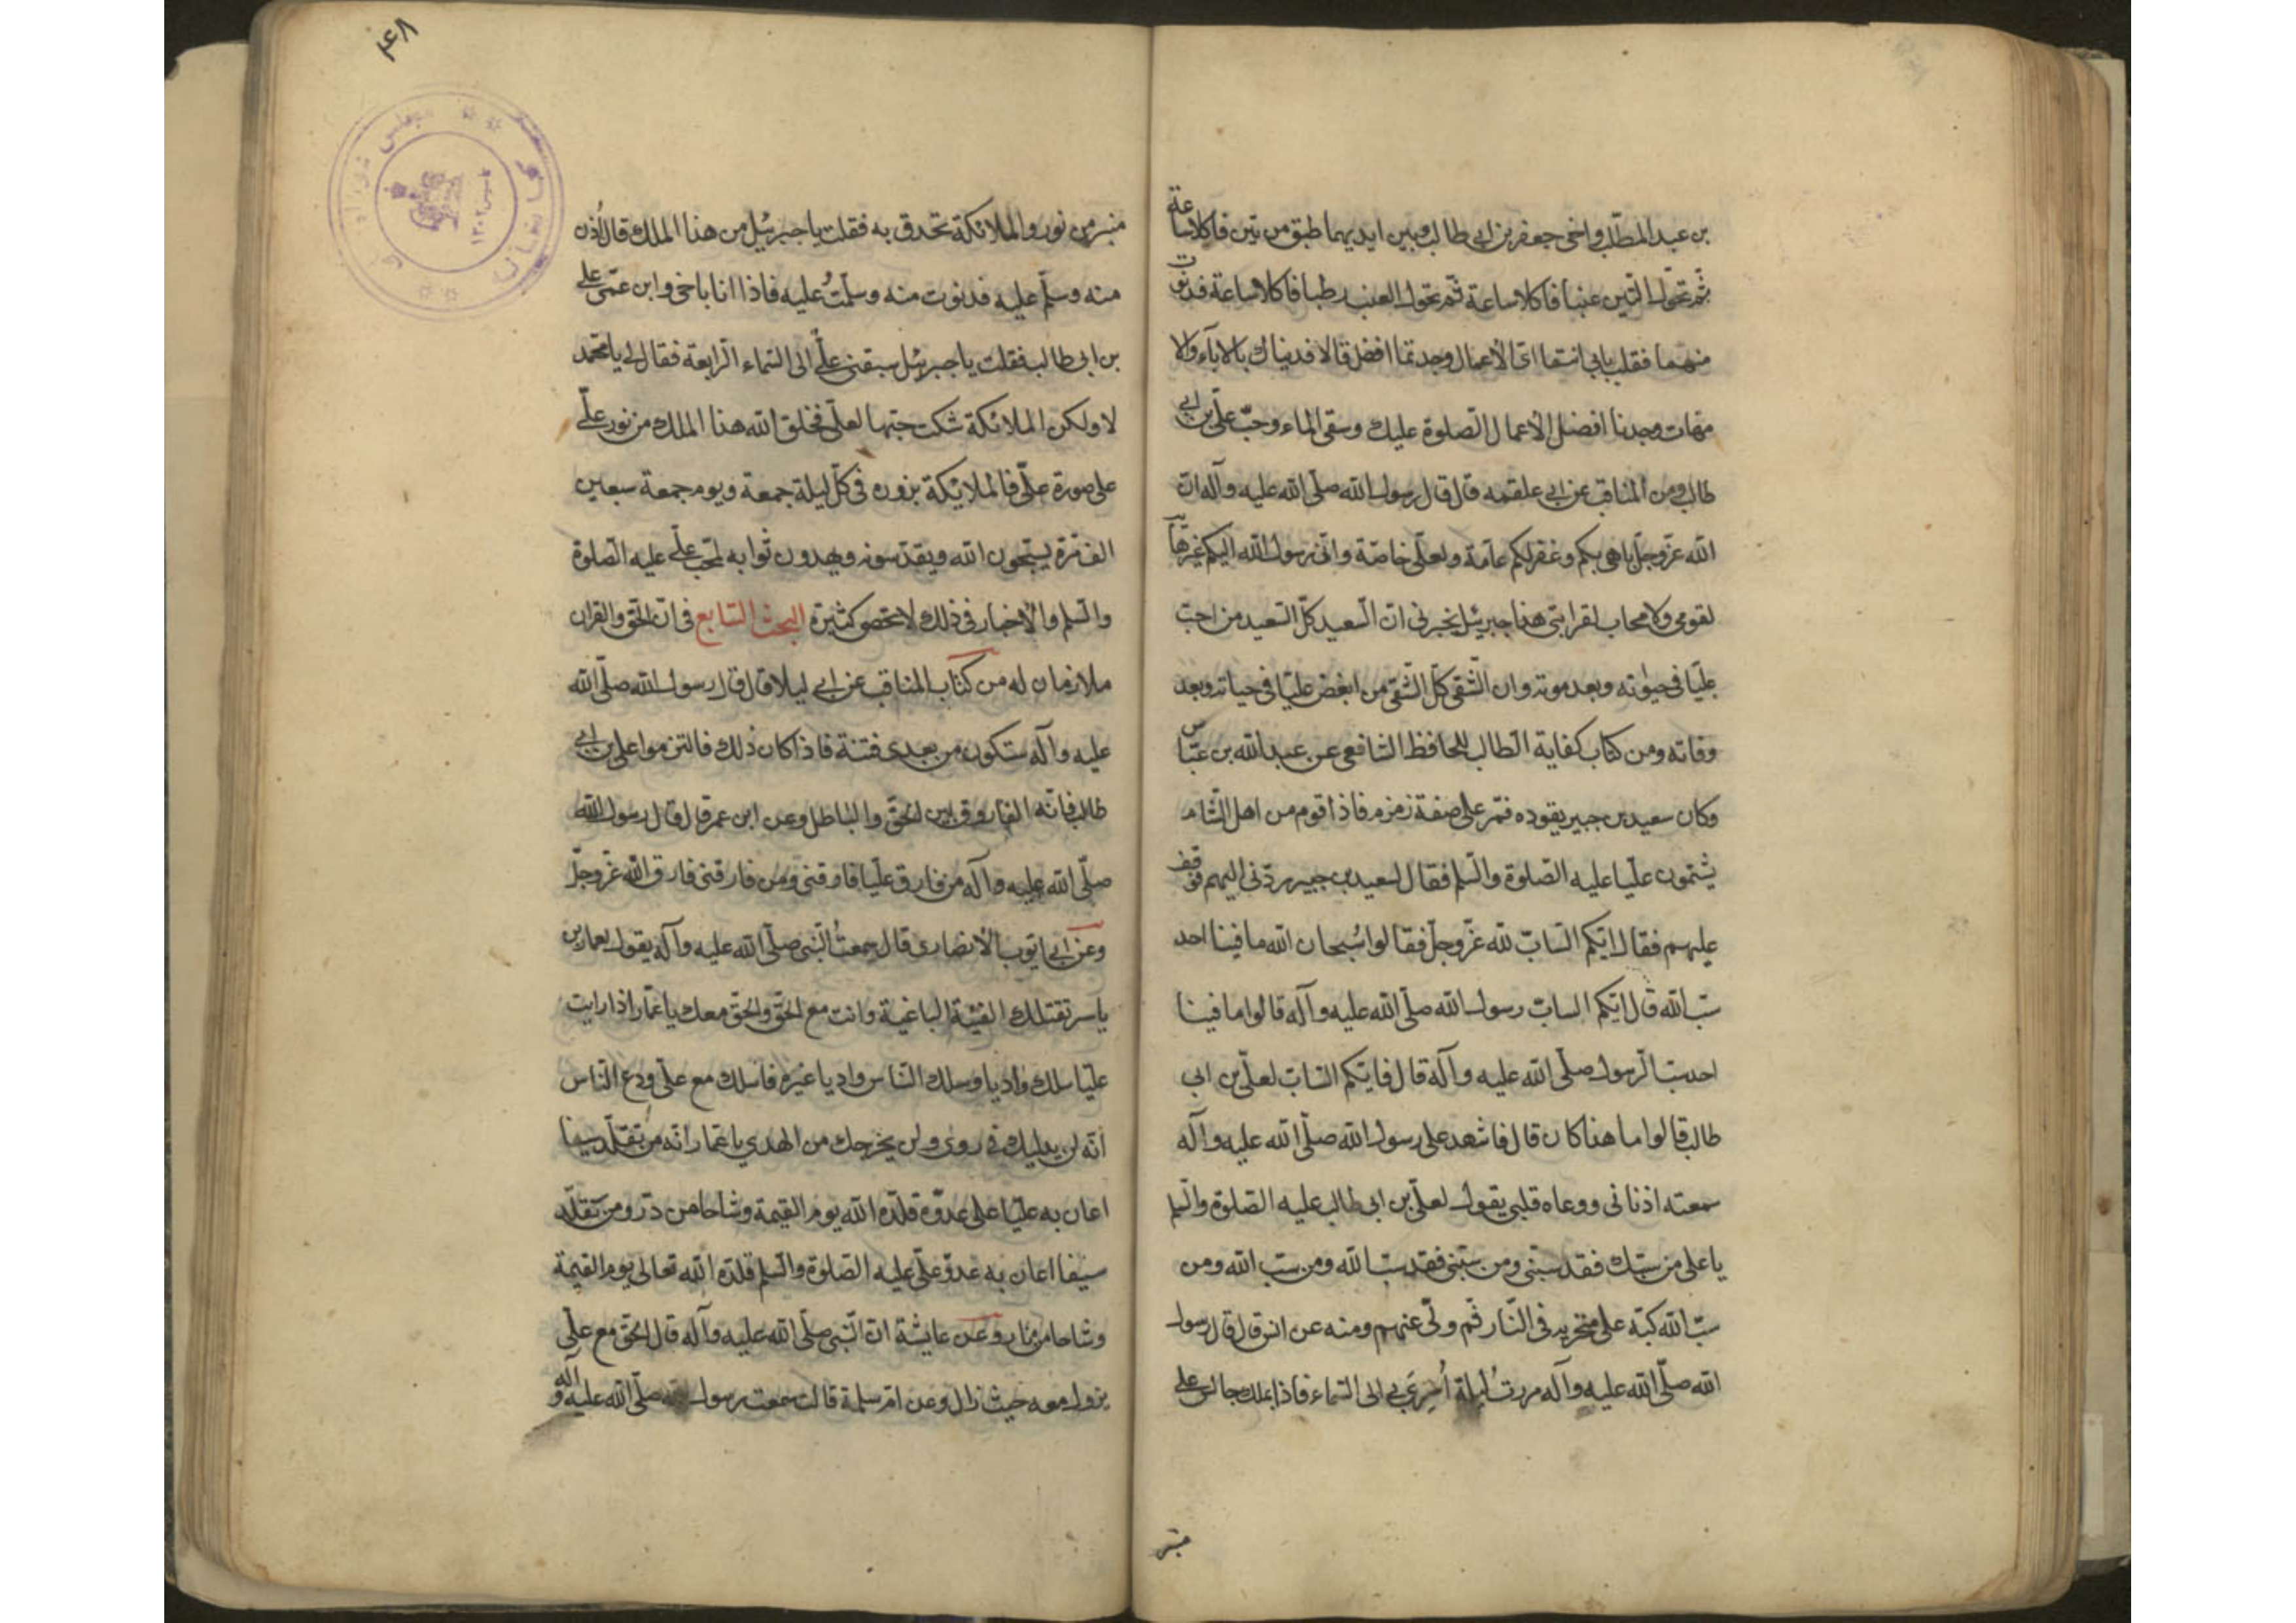 بن عبد المطلب واخى جعفر بن ابى طالب وبين ايديهما طبق من تين فاكلا ساعة
ثم تحول التين عنبا فاكلا ساعة ثم تحول العنب رطبا فاكلا ساعة فدنوت
منهما فقلت بابى انتما اى الأعمال وجدتما افضل قالا فديناك بالاباء والا
مهات وجدنا افضل الأعمال الصلوة عليك وسقى الماء وحب على بن ابى
طالب ومن المناقب عن ابى علقمه قال قال رسول الله صلى الله عليه وآله ان
الله عز وجل باهى بكم وغفر لكم عامة ولعلى خاصة وانى رسول الله اليكم غير هائب
لقومى ولا محاب لقرابتى هذا جبرئيل يخبرنى ان السعيد كل السعيد من احب
عليا فى حيوته وبعد موته وان الشقى كل الشقى من ابغض عليا فى حياته وبعد
وفاته ومن كتاب كفاية الطالب للحافظ الشافعى عن عبد الله بن عباس
وكان سعيد بن جبير يقوده فمر على صفة زمزم فاذا قوم من اهل الشام
يشتمون عليا عليه الصلوة والسلم فقال لسعيد بن جبير ردنى اليهم فوقف
عليهم فقال ايكم الساب لله عز وجل فقالوا سُبحان الله ما فينا احد
سب الله قال ايكم الساب رسول الله صلى الله عليه وآله قالوا ما فينا
احد سب الرسول صلى الله عليه وآله قال فايكم الساب لعلى بن ابى
طالب قالوا اما هذا كان قال فاشهد على رسول الله صلى الله عليه وآله
سمعته اذنانى ووعاه قلبى يقول لعلى بن ابى طالب عليه الصلوة والسلم
يا على من سبك فقد سبنى ومن سبنى فقد سب الله ومن سب الله ومن
سب الله كبه على منخريه فى النار ثم ولى عنهم ومنه عن انس قال قال رسول
الله صلى الله عليه وآله مررتُ ليلة اُسرِىَ بى الى السماء فاذا بملك جالس على
منبر
۴۸
منبر من نور والملائكة تحدق به فقلت يا جبرئيل من هذا الملك قال اُدن
منه وسلم عليه فدنوت منه وسلمتُ عليه فاذا انا باخى وابن عمى على
بن ابى طالب فقلت يا جبرئيل سبقنى على الى السماء الرابعة فقال لى يا محمد
لا ولكن الملائكة شكت حبها لعلى فخلق الله هذا الملك من نور على
على صورة على فالملائكة يزوره فى كل ليلة جمعة ويوم جمعة سبعين
الف مرة يسبحون الله ويقدسونه ويهدون ثوابه لمحب على عليه الصلوة
والسلم والأخبار فى ذلك لا تحصى كثيرة البحث السابع فى ان الحق والقران
ملازمان له من كتاب المناقب عن ابى ليلا قال قال رسول الله صلى الله
عليه وآله ستكون من بعدى فتنة فاذا كان ذلك فالتزموا على بن ابى
طالب فانه الفاروق بين الحق والباطل وعن ابن عمر قال قال رسول الله
صلى الله عليه وآله من فارق عليا فارقنى ومن فارقنى فارق الله عز وجل
وعن ابى ايوب الأنصارى قال سمعتُ النبى صلى الله عليه وآله يقول لعمار بن
ياسر تقتلك الفئة الباغية وانت مع الحق والحق معك يا عمار اذا رايت
عليا سلك واديا وسلك الناس واديا غيره فاسلك مع على ودع الناس
انه لن يدليك فى روى ولن يخرجك من الهدي يا عمار انه من تقلد سيفا
اعان به عليا على عدوه قلده الله يوم القيمة وشاحا من در ومن تقلد
سيفا اعان به عدو على عليه الصلوة والسلم قلده الله تعالى يوم القيمة
وشاحا من نار وعن عايشة ان النبى صلى الله عليه وآله قال الحق مع على
يزول معه حيث زال وعن ام سلمة قالت سمعت رسول الله صلى الله عليه وآله و